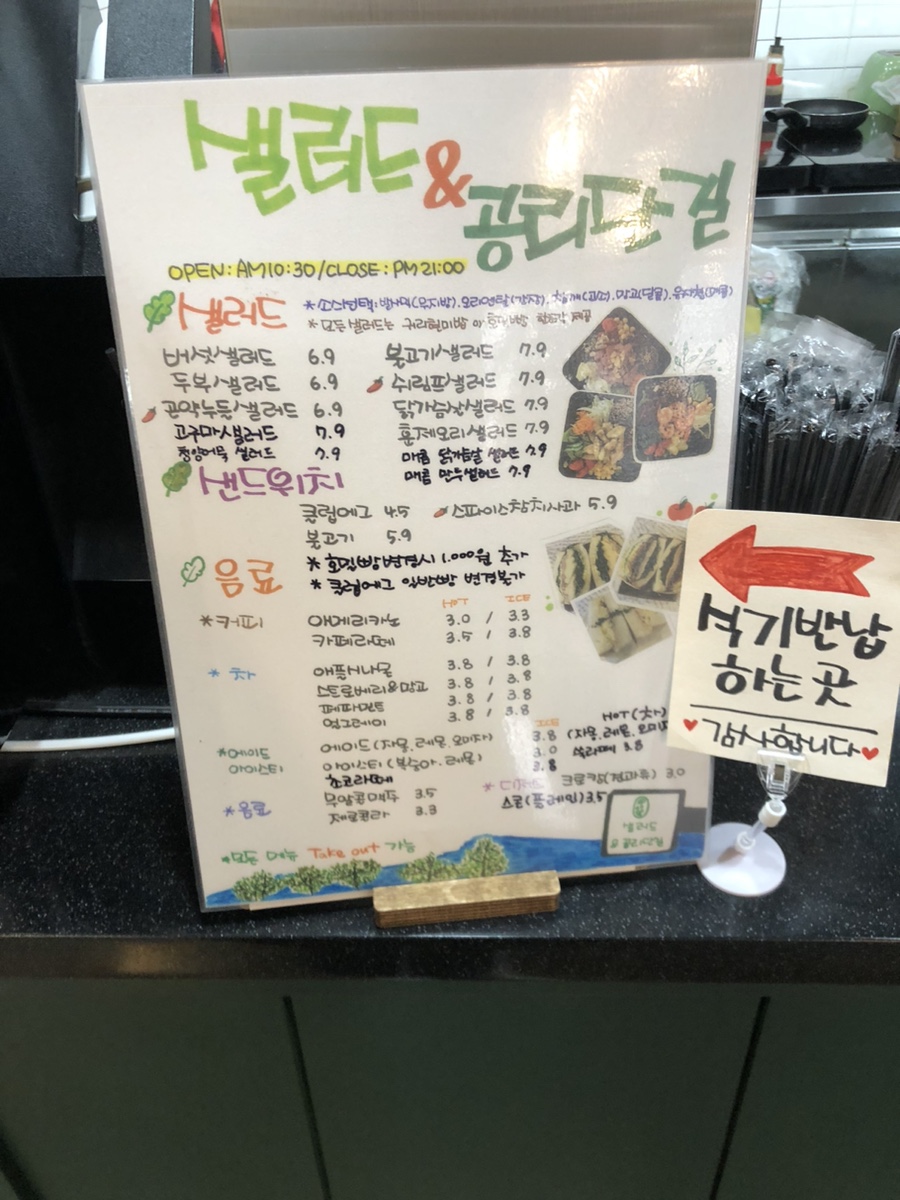 샐러드
&
공리단길
OPEN: AM10:30/CLOSE: PM 21:00
샐러드
*소스선택: 발사믹(무지방), 오리엔탈(간장), 참깨(고소), 망고(달콤), 유자청(매콤)
*모든 샐러드는 귀리현미밥 or 통밀빵 한조각 제공
버섯샐러드 6.9
불고기샐러드 7.9
두부샐러드 6.9
쉬림프샐러드 7.9
곤약누들샐러드 6.9
닭가슴살샐러드 7.9
고구마샐러드 7.9
훈제오리샐러드 7.9
청양어묵 샐러드 7.9
매콤 닭가슴살 샐러드 7.9
매콤 만두샐러드 7.9
샌드위치
클럽에그 4.5
스파이스참치사과 5.9
불고기 5.9
음료
*호밀빵변경시 1.000원 추가
*클럽에그 일반빵 변경불가
HOT ICE
*커피
아메리카노 3.0 / 3.3
카페라떼 3.5 / 3.8
*차
애플시나몬 3.8 / 3.8
스트로베리&망고 3.8 / 3.8
페퍼민트 3.8 / 3.8
얼그레이 3.8 / 3.8
ICE
HOT(차)
*에이드
에이드(자몽.레몬.오미자) 3.8
(자몽.레몬.오미자
아이스티
아이스티(복숭아.레몬) 3.0
3.8
초코라떼 3.8
*디저트
크로칸(견과류) 3.0
*음료
무알콜맥주 3.5
스콘(플레인)3.5
제로콜라 3.3
샐러드
*모든 메뉴 Take out 가능
식기반납
하는 곳
감사합니다